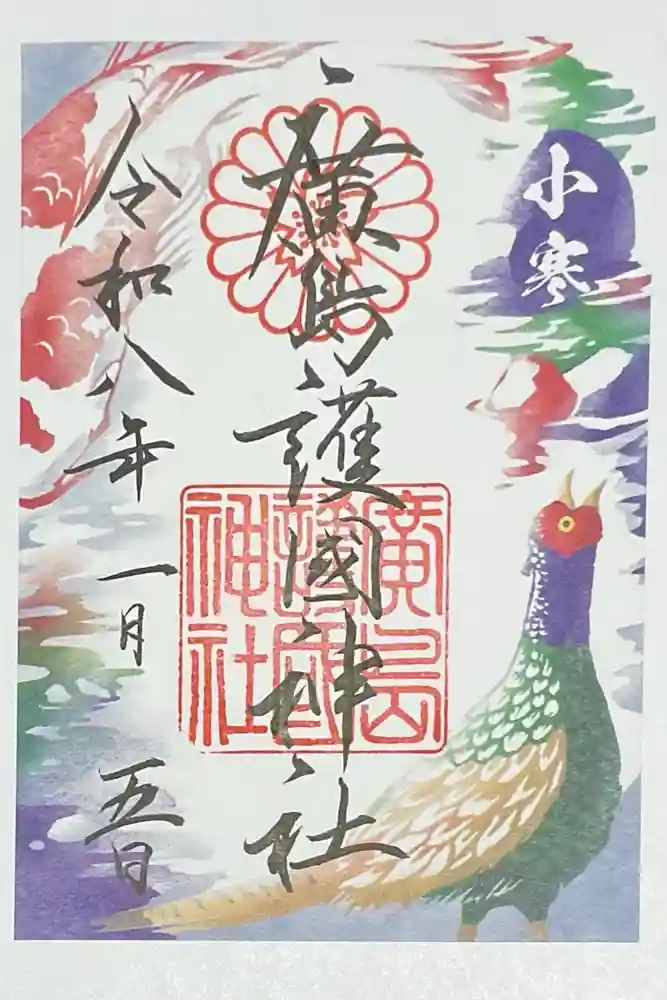 小寒
廣島護國神社
廣島
護國
神社
令和八年一月五日